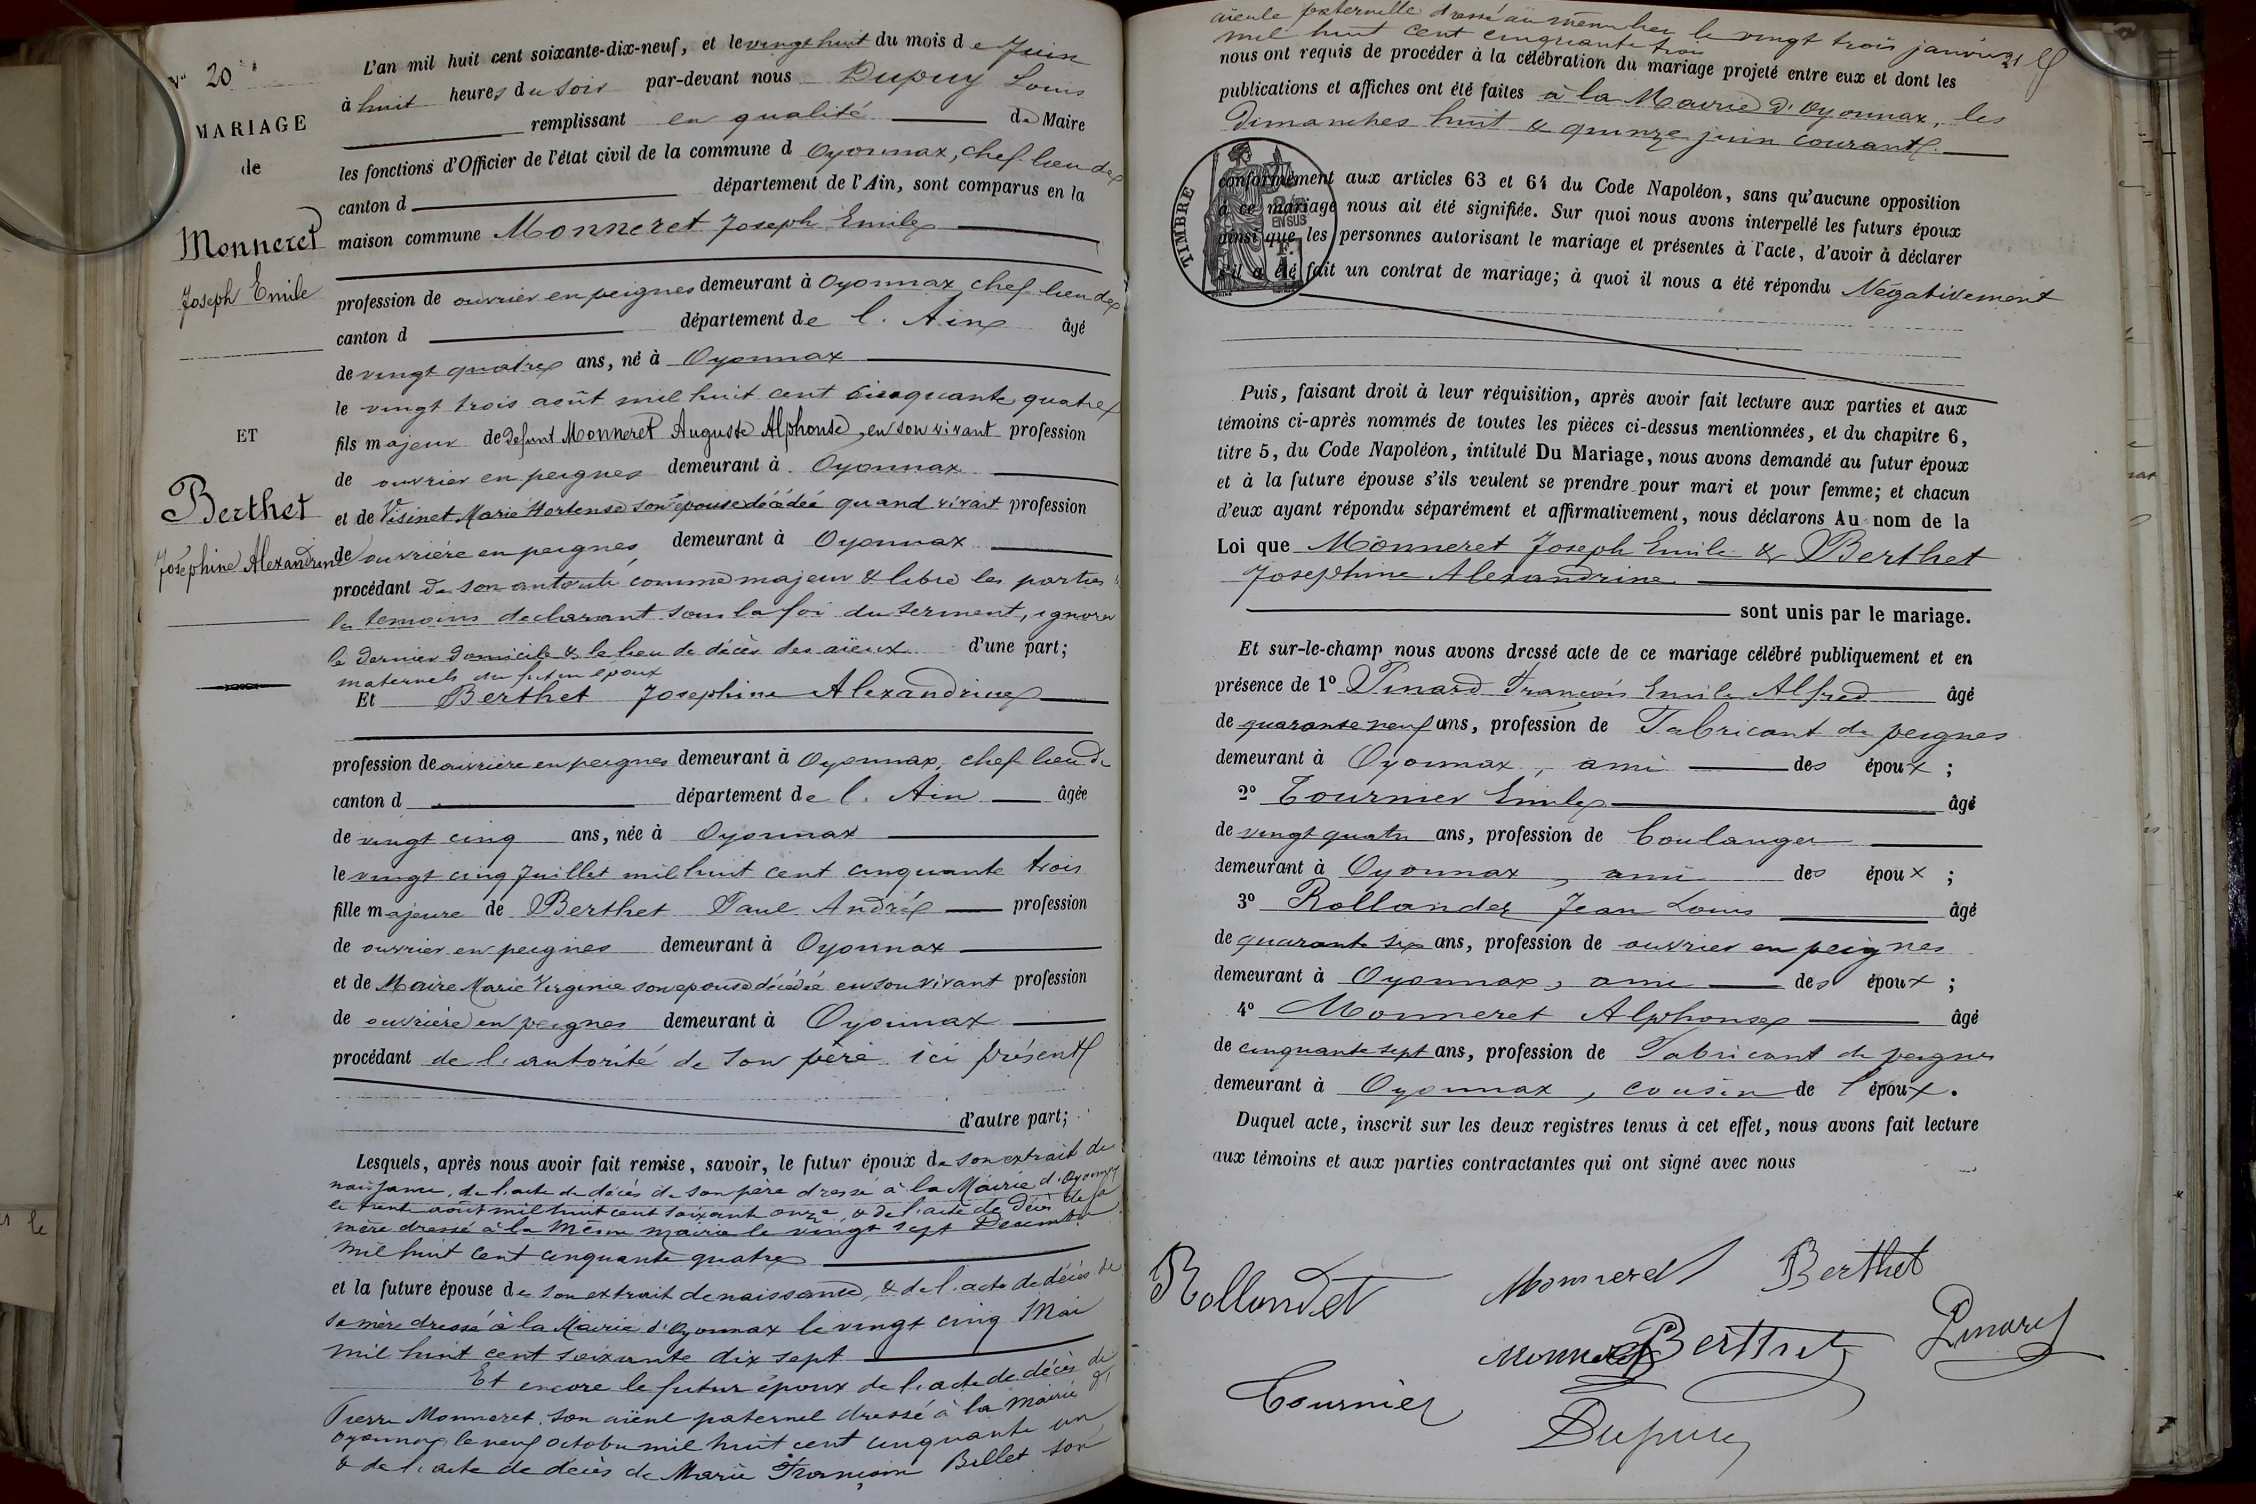 N° 20
MARIAGE
de
Monneret
Joseph Emile
ET
Berthet
Joséphine Alexandrine
L'an mil huit cent soixante-dix-neuf, et le vingt huit du mois de Juin
à huit heures du soir par-devant nous Dupuy Louis
remplissant en qualité de Maire
les fonctions d'Officier de l'état civil de la commune d Oyonnax, chef lieu de
canton d département de l'Ain, sont comparus en la
maison commune Monneret Joseph Emile
profession de ouvrier en peignes demeurant à Oyonnax chef lieu de
canton d département de l'Ain âgé
de vingt quatre ans, né à Oyonnax
le vingt trois août mil huit cent cinquante quatre
fils majeur de defunt Monneret Auguste Alphonse, en son vivant profession
de ouvrier en peignes demeurant à Oyonnax
et de Visinet Marie Hortense son épouse décédée quand vivait profession
de ouvrière en peignes demeurant à Oyonnax
procédant de son autorité comme majeur & libre les parties &
les temoins declarant sous la foi du serment, ignorer
le dernier domicile & le lieu de décès des aïeux d'une part;
maternels du futur époux
Et Berthet Josephine Alexandrine
profession de ouvrière en peignes demeurant à Oyonnax, chef lieu de
canton d département de l'Ain âgée
de vingt cinq ans, née à Oyonnax
le vingt cinq Juillet mil huit cent cinquante trois
fille majeure de Berthet Paul André profession
de ouvrier en peignes demeurant à Oyonnax
et de Maire Marie Virginie son epouse décédée en son vivant profession
de ouvrière en peignes demeurant à Oyonnax
procédant de l'autorité de son père ici présent
d'autre part;
Lesquels, après nous avoir fait remise, savoir, le futur époux de son extrait de
naissance, de l'acte de décès de son père dressé à la Mairie d'Oyonnax
le trente août mil huit cent soixante onze & de l'acte de décès de sa
mère dressé à la même mairie le vingt sept Decembre
mil huit cent cinquante quatre
et la future épouse de son extrait de naissance, & de l'acte de décès de
sa mère dressé à la Mairie d'Oyonnax le vingt cinq Mai
mil huit cent soixante dix sept
Et encore le futur époux de l'acte de décès de
Pierre Monneret son aïeul paternel dressé à la Mairie d'
Oyonnax le neuf octobre mil huit cent cinquante un
& de l'acte de décès de Marie Françoise Billet son
aïeule paternelle dressé au même lieu le vingt trois janvier
mil huit cent cinquante trois
nous ont requis de procéder à la célébration du mariage projeté entre eux et dont les
publications et affiches ont été faites à la Mairie d'Oyonnax, les
Dimanches huit & quinze juin courant
TIMBRE
EN SUS
conformément aux articles 63 et 64 du Code Napoléon, sans qu'aucune opposition
à ce mariage nous ait été signifiée. Sur quoi nous avons interpellé les futurs époux
ainsi que les personnes autorisant le mariage et présentes à l'acte, d'avoir à déclarer
s'il a été fait un contrat de mariage; à quoi il nous a été répondu Négativement
Puis, faisant droit à leur réquisition, après avoir fait lecture aux parties et aux
témoins ci-après nommés de toutes les pièces ci-dessus mentionnées, et du chapitre 6,
titre 5, du Code Napoléon, intitulé Du Mariage, nous avons demandé au futur époux
et à la future épouse s'ils veulent se prendre pour mari et pour femme; et chacun
d'eux ayant répondu séparément et affirmativement, nous déclarons Au nom de la
Loi que Monneret Joseph Emile & Berthet
Josephine Alexandrine
sont unis par le mariage.
Et sur-le-champ nous avons dressé acte de ce mariage célébré publiquement et en
présence de 1° Pinard François Emile Alfred âgé
de quarante neuf ans, profession de Fabricant de peignes
demeurant à Oyonnax, ami des époux;
2° Tournier Emile âgé
de vingt quatre ans, profession de boulanger
demeurant à Oyonnax, ami des époux;
3° Rollandez Jean Louis âgé
de quarante six ans, profession de ouvrier en peignes
demeurant à Oyonnax, ami des époux;
4° Monneret Alphonse âgé
de cinquante sept ans, profession de Fabricant de peignes
demeurant à Oyonnax, cousin de l'époux.
Duquel acte, inscrit sur les deux registres tenus à cet effet, nous avons fait lecture
aux témoins et aux parties contractantes qui ont signé avec nous
Rollandet Monneret Berthet
Monneret Berthet Pinard
Tournier
Dupuy